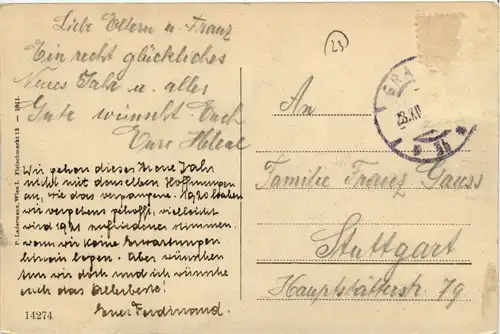 Liebe Eltern u. Franz
Ein recht glückliches
Neues Jahr u. alles
Gute wünscht Euch
Eure Helene
Wir gehen dieses Jahr
nicht mit denselben Hoffnungen
an, wie das vergangene. 1920 haben
wir vergebens gehofft, vielleicht
wird 1921 zufriedener stimmen,
wenn wir keine Erwartungen
hinein legen. Aber wünschen
tun wir doch und ich wünsche
euch das Allerbeste!
Euer Ferdinand.
14274
P. Ledermann, Wien I. Fleischmarkt 12
23
GRA
23.XII
8b
An
Familie Franz Gauss
Stuttgart
Hauptstätterstr. 79